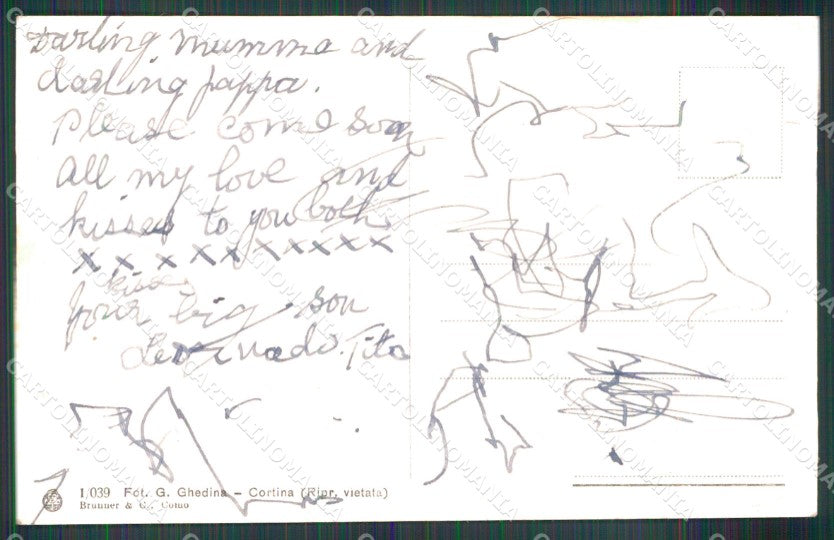 Darling mumma and
darling pappa.
Please come soon
All my love and
kisses to you both
x x x x x x x x x x
kisses
your big son
Leonnado. Tita
1,039 Fot. G. Ghedina - Cortina (Ripr. vietata)
Brunner & C., Como
CARTOLINOMANIA